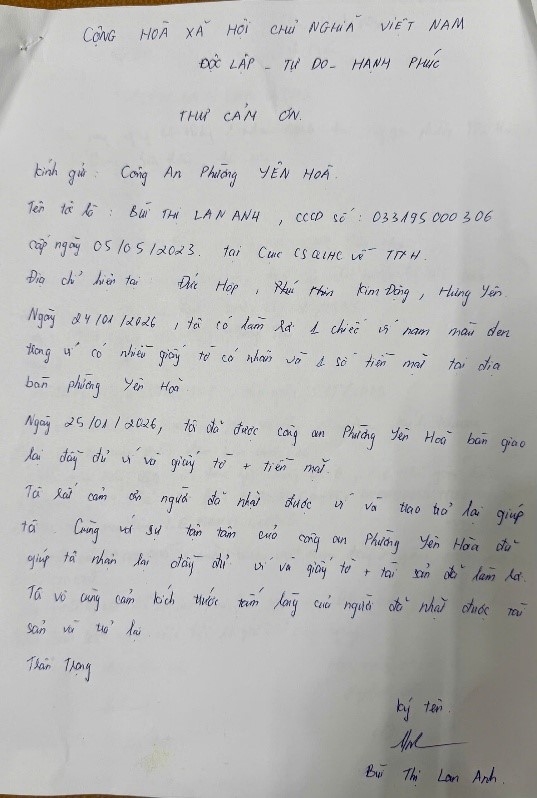 CỘNG HOÀ XÃ HỘI CHỦ NGHĨA VIỆT NAM
ĐỘC LẬP - TỰ DO - HẠNH PHÚC
THƯ CẢM ƠN.
Kính gửi : Công An Phường YÊN HOÀ.
Tên tôi là : BÙI THỊ LAN ANH , CCCD số : 033195000306
cấp ngày 05/05/2023. tại Cục CSQLHC về TTXH.
Địa chỉ hiện tại Đức Hợp , Kim Động , Hưng Yên.
Ngày 24/01/2026 , tôi có làm rơi 1 chiếc ví nam màu đen
trong ví có nhiều giấy tờ cá nhân và 1 số tiền mặt tại địa
bàn phường Yên Hoà
Ngày 25/01/2026, tôi đã được công an Phường Yên Hoà bàn giao
lại đầy đủ ví và giấy tờ + tiền mặt.
Tôi rất cảm ơn người đã nhặt được ví và trao trả lại giúp
tôi. Cùng với sự tận tâm của công an Phường Yên Hòa đã
giúp tôi nhận lại đầy đủ ví và giấy tờ + tài sản đã làm rơi.
Tôi vô cùng cảm kích trước tấm lòng của người đã nhặt được tài
sản và trả lại.
Trân Trọng
ký tên.
Bùi Thị Lan Anh.